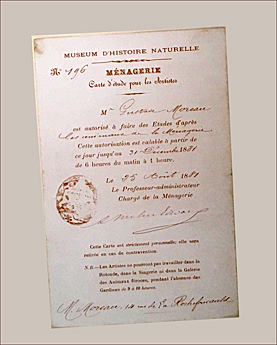 MUSEUM D'HISTOIRE NATURELLE
No 196
MÉNAGERIE
Carte d'étude pour les Artistes
M. Gustave Moreau
est autorisé à faire des Études d'après
les animaux de la Ménagerie
Cette autorisation est valable à partir de
ce jour jusqu'au 31 Décembre 1881
de 6 heures du matin à 1 heure.
Le 25 Août 1881
Le Professeur-administrateur
Chargé de la Ménagerie
Cette Carte est strictement personnelle; elle sera
retirée en cas de contravention.
N.B. - Les Artistes ne pourront pas travailler dans la
Rotonde, dans la Singerie ni dans la Galerie
des Animaux féroces, pendant l'absence des
Gardiens de 9 à 10 heures.
M. Moreau, 14 rue de La Rochefoucauld